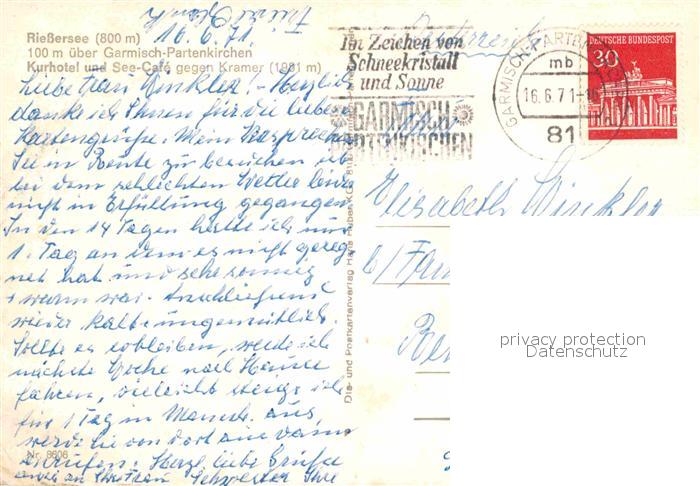 16. 6. 71.
Rießersee (800 m)
100 m über Garmisch-Partenkirchen
Kurhotel und See-Café gegen Kramer (1981 m)
Liebe Frau Winkler! - Herzlich
danke ich Ihnen für die lieben
Kartengrüße. Mein Versprechen
Sie in Reute zu besuchen
bei dem schlechten Wetter
nicht in Erfüllung gegangen
In den 14 Tagen hatte ich nur
1. Tag an dem es nicht gereg
net hat und sehr sonnig
+ warm war. Anschliessend
wieder kalt + ungemütlich.
Sollte es so bleiben, werde ich
nächste Woche nach Hause
fahren, vielleicht steige ich
für 1 Tag in Münch. aus,
werde Sie von dort aus dann
anrufen. Herzl. liebe Grüße
auch an Schwester Ihre
Nr. 8606
Dia- und Postkartenverlag Hans Huber KG
Im Zeichen von
Schneekristall
und Sonne
GARMISCH
PARTENKIRCHEN
GARMISCH-PARTENK
mb
16.6.71-18
81
DEUTSCHE BUNDESPOST
30
Elisabeth Winkler
b/Fam
privacy protection
Datenschutz